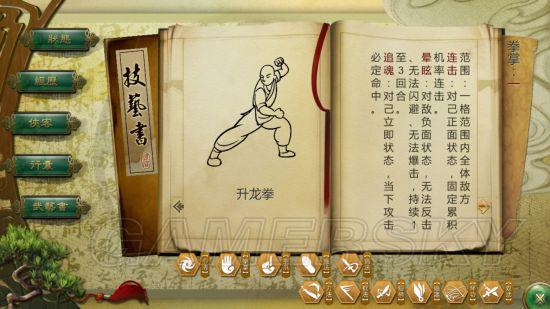 狀態
經歷
俠客
行囊
武藝書
技藝書
升龙拳
拳掌：一
范围：一格范围内全体敌方
连击：对己正面状态，固定累积
机率连击。
晕眩：对敌负面状态，无法反击
、无法闪避、无法爆击，持续1
至3回合。
追魂：对己立即状态，当下攻击
必定命中。
GAMERSKY